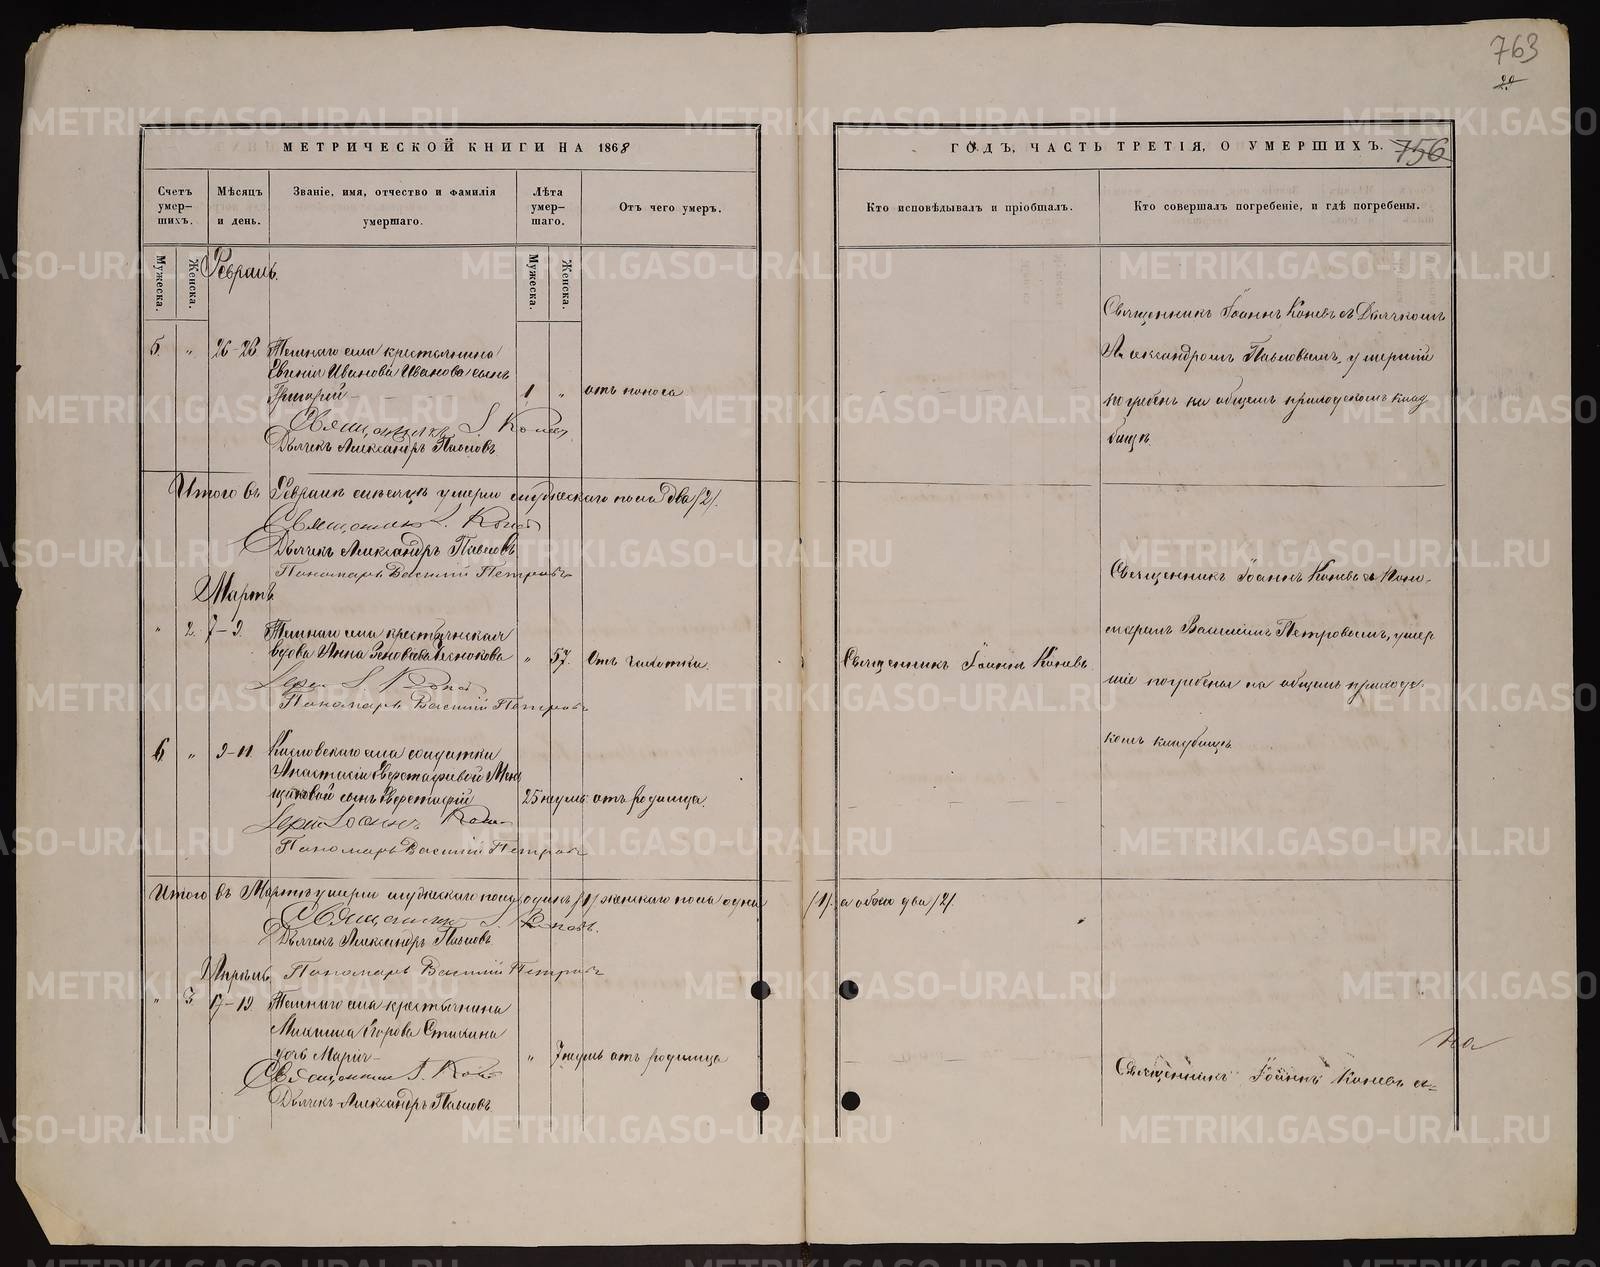 763
МЕТРИЧЕСКОЙ КНИГИ НА 1868
Счетъ умер-шихъ.
Мѣсяцъ и день.
Званіе, имя, отчество и фамилія умершаго.
Лѣта умер-шаго.
Отъ чего умеръ.
Мужеска.
Женска.
Мужеска.
Женска.
Февраль.
5. " 26-28
крестьянина
Евгенія Иванова Иванова сынъ
Григорій 1 " отъ поноса.
Священникъ І. Коневъ
Дьячекъ Александръ Павловъ
Итого въ Февралѣ мѣсяцѣ умерло мужескаго пола два /2/.
Священникъ І. Коневъ
Дьячекъ Александръ Павловъ
Пономарь Василій Петровъ
Мартъ.
" 2. 7-9.
села крестьянская
вдова Анна " 57. Отъ чахотки.
Іерей І. Коневъ
Пономарь Василій Петровъ
6 " 9-11.
села солдатки
Анастасіи Евстафіевой
сынъ Евстафій 25 недѣль отъ родимца.
Іерей Іоаннъ Коневъ
Пономарь Василій Петровъ
Итого въ Мартѣ умерло мужескаго пола одинъ /1/ женскаго пола одна
Священникъ І. Коневъ.
Дьячекъ Александръ Павловъ.
Апрѣль. Пономарь Василій Петровъ
" 3 17-19.
села крестьянина
Егорова
дочь Марія " 7 недѣль отъ родимца
Священникъ І. Коневъ
Дьячекъ Александръ Павловъ.
ГОДЪ, ЧАСТЬ ТРЕТІЯ, О УМЕРШИХЪ. 756
Кто исповѣдывалъ и пріобщалъ.
Кто совершалъ погребеніе, и гдѣ погребены.
Священникъ Іоаннъ Коневъ съ Дьячкомъ
Александромъ Павловымъ, умершій
погребенъ на общемъ приходскомъ клад
бищѣ.
Священникъ Іоаннъ Коневъ
Священникъ Іоаннъ Коневъ съ Поно-
маремъ Василіемъ Петровымъ, умер
шіе погребены на общемъ приход-
комъ кладбищѣ.
/1/. а обоего два /2/.
на
Священникъ Іоаннъ Коневъ съ
METRIKI.GASO-URAL.RU